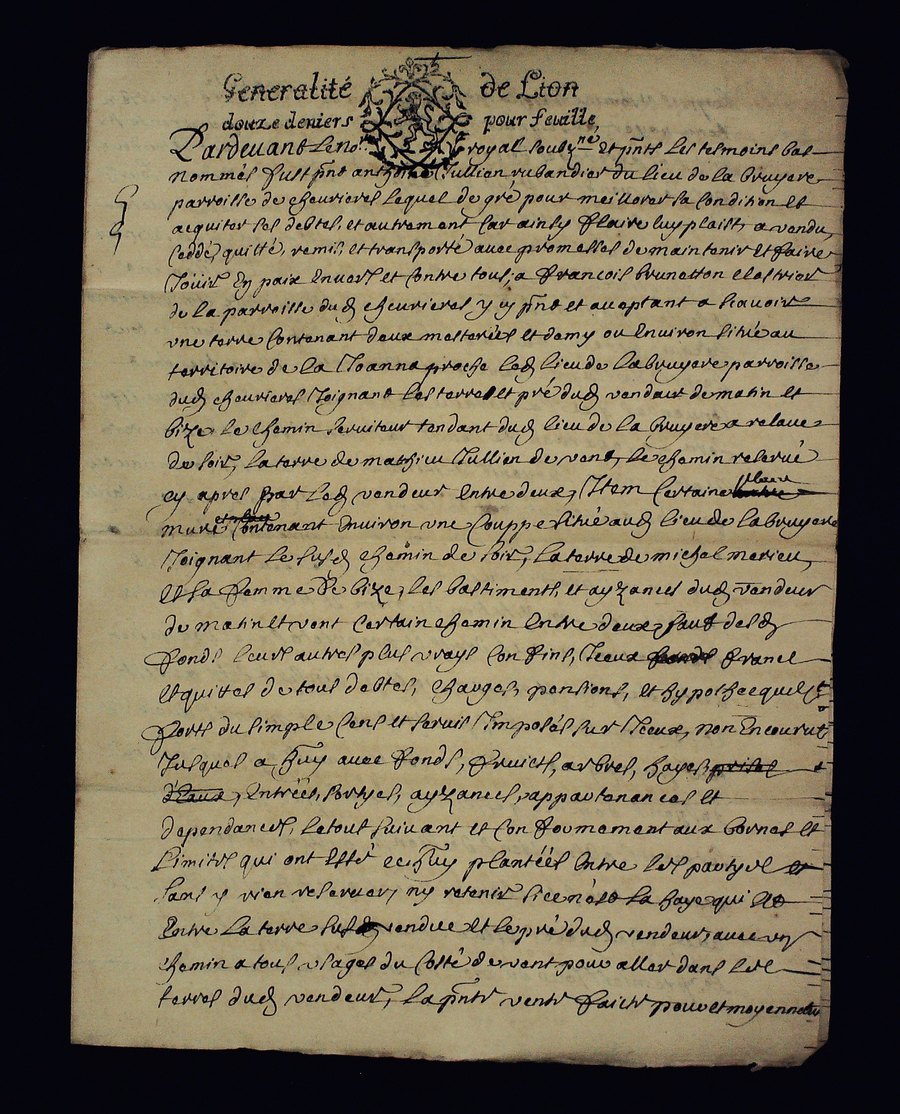 Generalité de Lion
douze deniers pour feuille
Pardevant le no.re royal soubz.né et pnts les tesmoins bas
nommés fust pnt anthoine Jullien rubandier du lieu de la bruyere
parroisse de chevrieres lequel de gré pour meillorer sa condition et
acquiter ses debtes, et autrement car ainsy faire luy plaist, a vendu
ceddé, quitté, remis, et transporté avec promesses de maintenir et faire
Jouir En paix Envers et Contre tous, a francois brunetton
de la parroisse dud chevrieres y cy pnt et acceptant a scavoir
une terre Contenant deux metterées et demy ou Environ sitiée au
territoire de la Joanna proche led lieu de la bruyere parroisse
dud chevrieres Joignant les terres et pré dud vendeur de matin et
bize, le chemin serviteur tendant dud lieu de la bruyere a
de soir, la terre de mathieu Jullien de vent, le chemin reservé
cy apres par led vendeur entre deux, Item Certaine
mure Contenant environ une Couppe sitiée aud lieu de la bruyere
Joignant le susd chemin de soir, la terre de michel merieu
et sa femme de bize, les bastiments, et ayzances dud vendeur
de matin et vent Certain chemin entre deux, sauf desd
fonds leurs autres plus vrays Confins, Iceux fonds francs
et quittes de tous debtes, charges, pensions, et hypothecques
fors du simple Cens et servis Imposés sur Iceux, non Encourut
Jusques a huy avec fonds, fruicts, arbres, hayes, prises
d'Eaux, Entrées, sortyes, ayzances, appartenances et
dependances, le tout suivant et Conformement aux bornes et
Limites qui ont esté cejourd'huy plantées Entre les partyes et
sans y rien reserver, ny retenir si ce n'est la haye qui est
Entre la terre susd vendue et le pré dud vendeur, avec un
chemin a tous usages du Costé de vent pour aller dans les
terres dud vendeur, la pnte vente faicte pour et moyennant